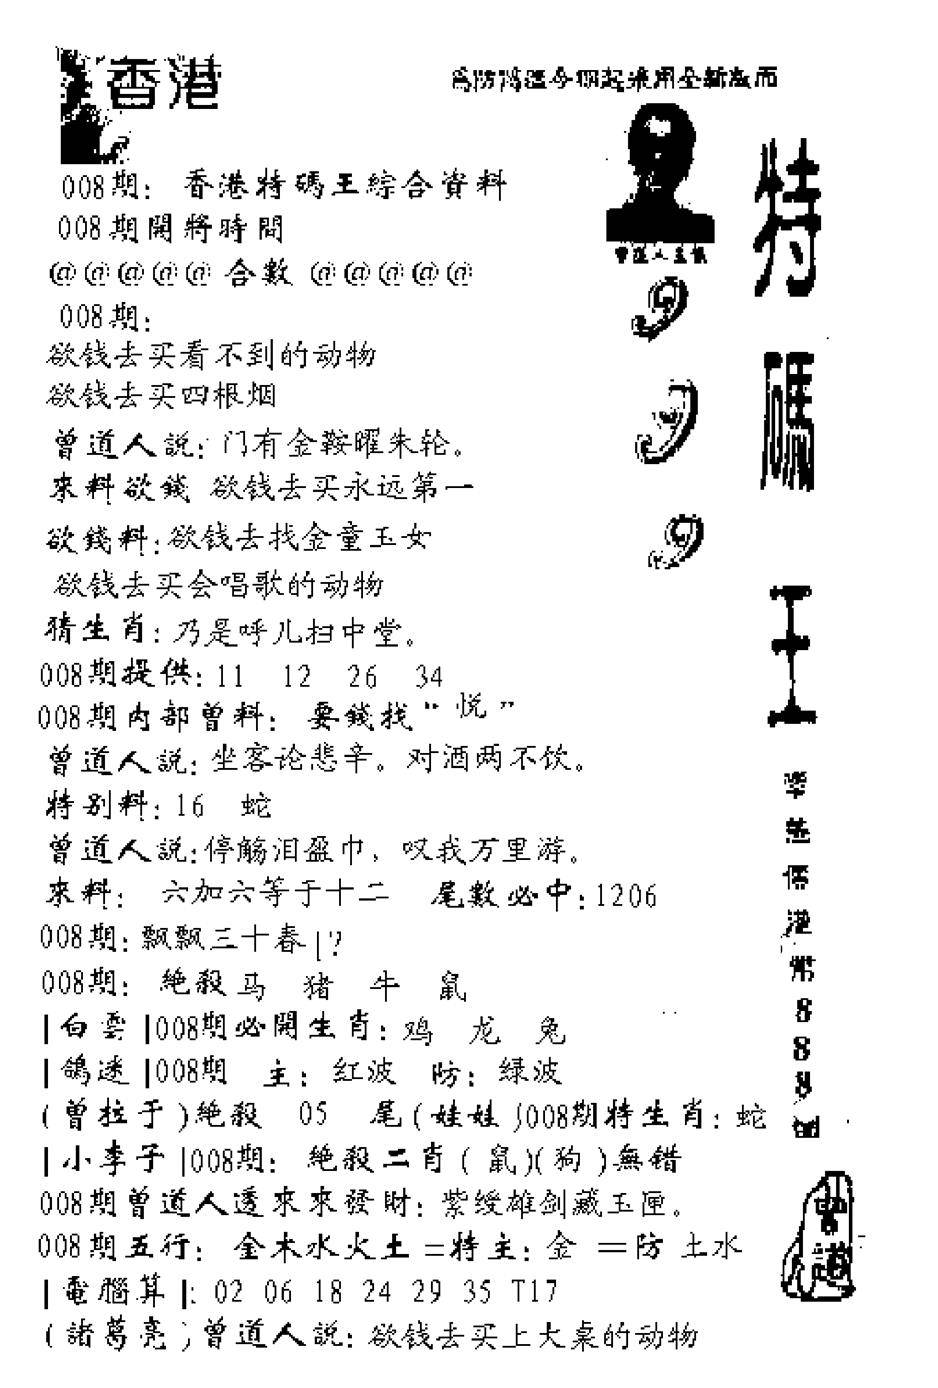 香港
008期：香港特碼王綜合資料
008期開將時間
@@@@@合數@@@@@
008期：
欲钱去买看不到的动物
欲钱去买四根烟
曾道人説：门有金鞍曜朱轮。
來料欲錢 欲钱去买永远第一
欲錢料：欲钱去找金童玉女
欲钱去买会唱歌的动物
猜生肖：乃是呼儿扫中堂。
008期提供：11 12 26 34
008期内部曾料：要錢找“悦”
曾道人説：坐客论悲辛。对酒两不饮。
特别料：16 蛇
曾道人説：停觞泪盈巾，叹我万里游。
來料：六加六等于十二 尾數必中：1206
008期：飘飘三十春|?
008期：絶殺马 猪 牛 鼠
|白雲|008期必開生肖：鸡 龙 兔
|鴿迷|008期 主：红波 防：绿波
(曾拉于)絶殺 05 尾(娃娃)008期特生肖：蛇
|小李子|008期：絶殺二肖(鼠)(狗)無错
008期曾道人透來來發財：紫绶雄剑藏玉匣。
008期五行：金木水火土=特主：金 =防 土水
|電腦算|：02 06 18 24 29 35 T17
(諸葛亮)曾道人説：欲钱去买上大桌的动物
特碼王
999
港幣
888
曾道